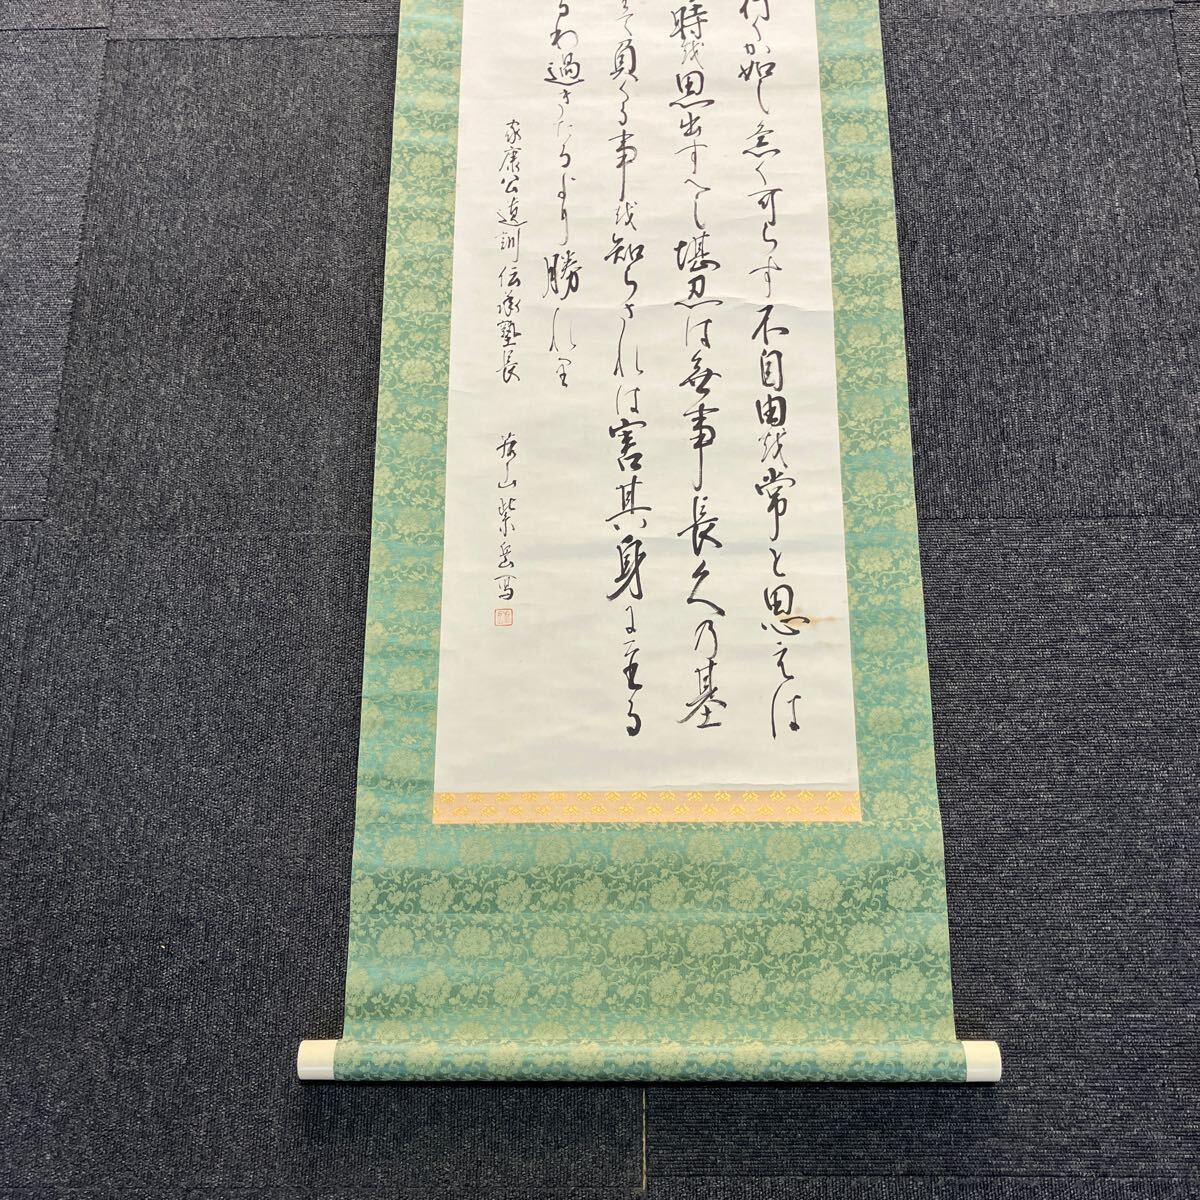 行くか如し急く可らす不自由越常と思えは
時越思出すへし堪忍は無事長久乃基
て負くる事越知らされは害其身に至る
るわ過きたるより勝れり
家康公遺訓 伝承塾長 山紫岳写